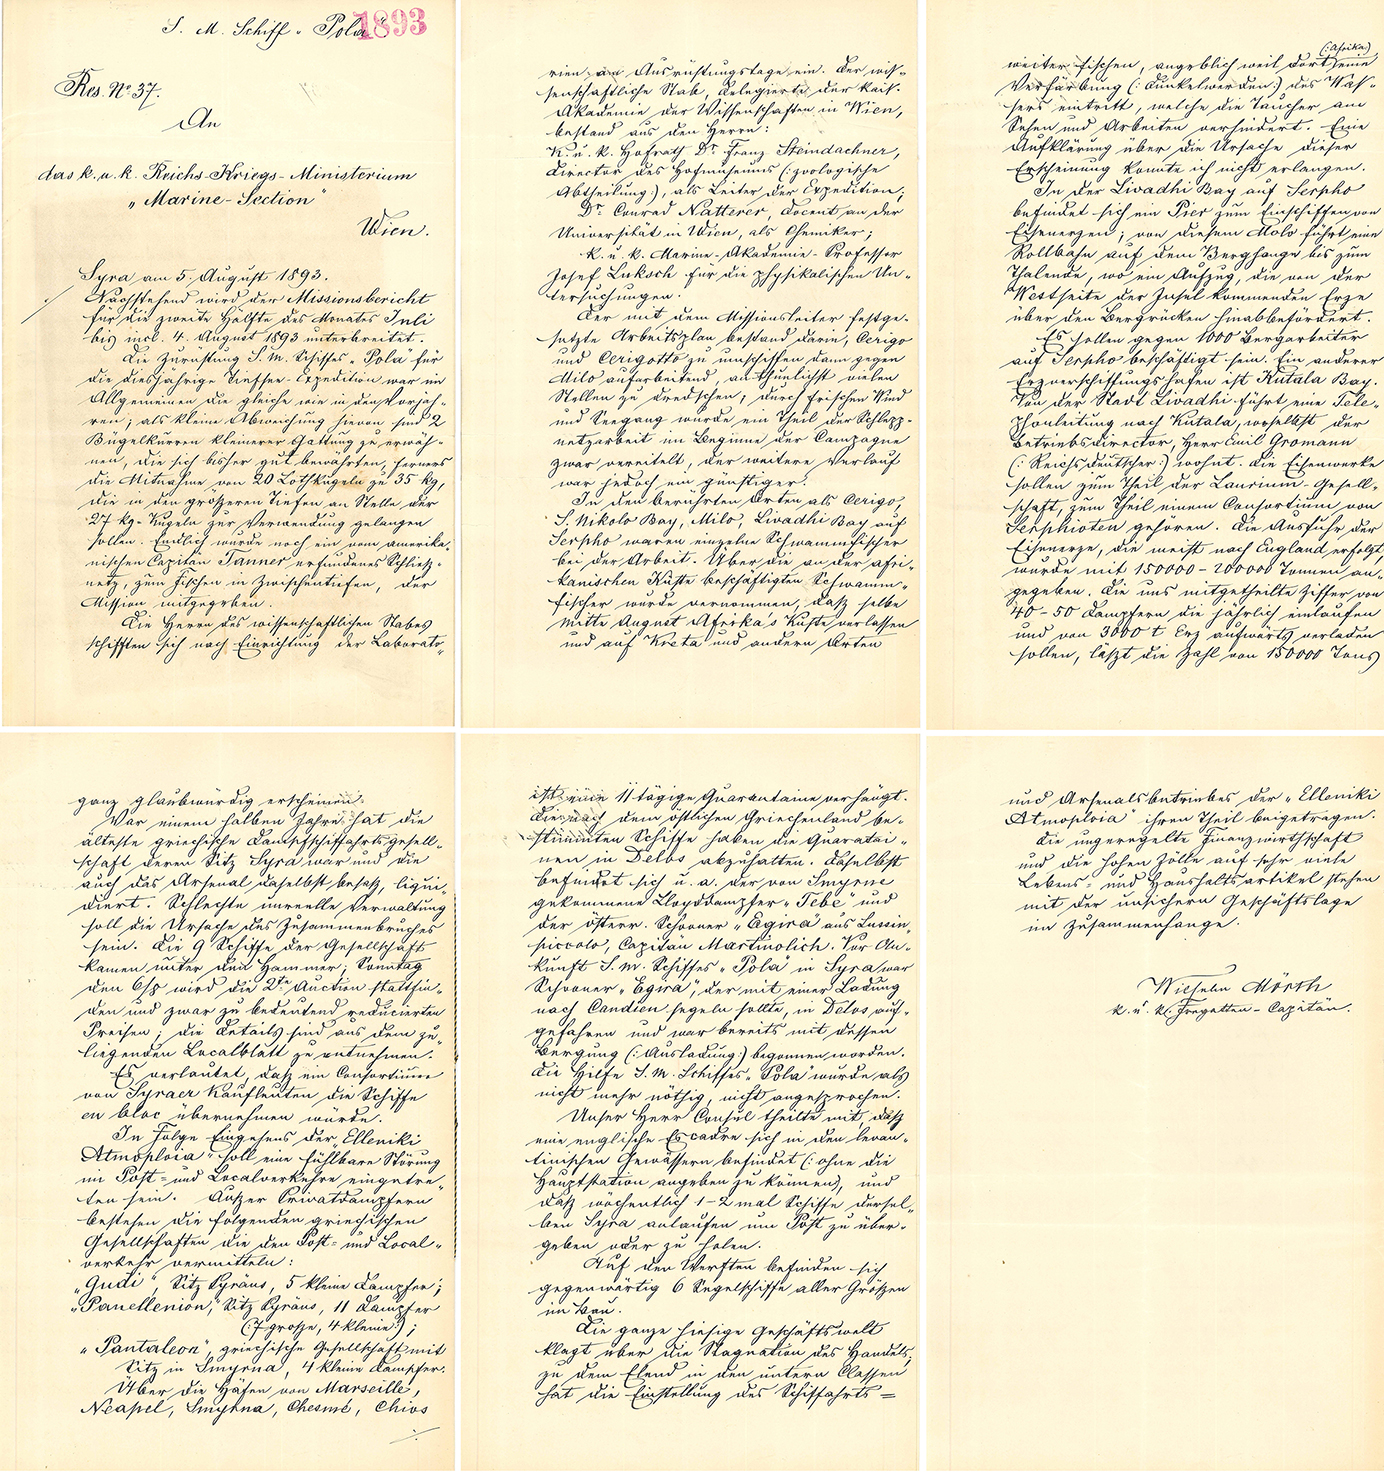 S. M. Schiff „Pola“
1893
Res. No 37.
An
das k. u. k. Reichs-Kriegs-Ministerium
„Marine-Section“
Wien.
Syra am 5. August 1893.
Nachstehend wird der Missionsbericht
für die zweite Hälfte des Monates Juli
bis incl. 4. August 1893 unterbreitet.
Die Zurüstung S. M. Schiffes „Pola“ für
die diesjährige Tiefsee-Expedition war im
Allgemeinen die gleiche wie in den Vorjah-
ren; als kleine Abweichung hievon sind 2
Bügelkurren kleinerer Gattung zu erwäh-
nen, die sich bisher gut bewährten, ferners
die Mitnahme von 20 Lothkugeln zu 35 kg,
die in den größeren Tiefen an Stelle der
27 kg-Kugeln zur Verwendung gelangen
sollen. Endlich wurde noch ein vom amerika-
nischen Capitän Tanner erfundenes Schließ-
netz, zum Fischen in Zwischentiefen, der
Mission mitgegeben.
Die Herren des wissenschaftlichen Stabes
schifften sich nach Einrichtung der Laborato-
rien, am Ausrüstungstage ein. Der wis-
senschaftliche Stab, Delegierte der kais.
Akademie der Wissenschaften in Wien,
bestand aus den Herrn:
K. u. k. Hofrath Dr. Franz Steindachner,
Director des Hofmuseums (: zoologische
Abtheilung:), als Leiter der Expedition;
Dr. Conrad Natterer, Docent an der
Universität in Wien, als Chemiker;
k. u. k. Marine-Akademie-Professor
Josef Luksch für die physikalischen Un-
tersuchungen.
Der mit dem Missionsleiter festge-
setzte Arbeitsplan bestand darin, Cerigo
und Cerigotto zu umschiffen dann gegen
Milo aufarbeitend, an thunlichst vielen
Stellen zu dredschen; durch frischen Wind
und Seegang wurde ein Theil der Schlepp-
netzarbeit im Beginne der Campagne
zwar vereitelt, der weitere Verlauf
war jedoch ein günstiger.
In den berührten Orten als Cerigo,
S. Nikolo Bay, Milo, Livadhi Bay auf
Serpho waren einzelne Schwammfischer
bei der Arbeit. Über die an der afri-
kanischen Küste beschäftigten Schwamm-
fischer wurde vernommen, daß selbe
Mitte August Afrika's Küste verlassen
und auf Kreta und andern Orten
(: Afrika)
weiter fischen, angeblich weil dort eine
Verfärbung (: Dunkelwerden:) des Was-
sers eintritt, welche die Taucher am
Sehen und Arbeiten verhindert. Eine
Aufklärung über die Ursache dieser
Erscheinung konnte ich nicht erlangen.
In der Livadhi Bay auf Serpho
befindet sich ein Pier zum Einschiffen von
Eisenerzen; von diesem Molo führt eine
Rollbahn auf dem Berghange bis zum
Thalende, wo ein Aufzug, die von der
Westseite der Insel kommenden Erze
über den Bergrücken hinabbefördert.
Es sollen gegen 1000 Bergarbeiter
auf Serpho beschäftigt sein. Ein anderer
Erzverschiffungshafen ist Kutala Bay.
Von der Stadt Livadhi führt eine Tele-
phonleitung nach Kutala, woselbst der
Betriebsdirector, Herr Emil Gromann
(: Reichsdeutscher:) wohnt. Die Eisenwerke
sollen zum Theil der Laurium-Gesell-
schaft, zum Theil einem Consortium von
Serphioten gehören. Die Ausfuhr der
Eisenerze, die meist nach England erfolgt,
wurde mit 150000-200000 Tonnen an-
gegeben. Die uns mitgetheilte Ziffer von
40-50 Dampfern die jährlich einlaufen
und von 3000 t Erz aufwärts verladen
sollen, läßt die Zahl von 150000 Tons
ganz glaubwürdig erscheinen.
Vor einem halben Jahre hat die
älteste griechische Dampfschiffahrtsgesell-
schaft deren Sitz Syra war und die
auch das Arsenal daselbst besaß, liqui-
diert. Schlechte unreelle Verwaltung
soll die Ursache des Zusammenbruches
sein. Die 9 Schiffe der Gesellschaft
kamen unter den Hammer; Sonntag
den 6/8 wird die 2te Auction stattfin-
den und zwar zu bedeutend reducierten
Preisen; die Details sind aus dem zu-
liegenden Localblatt zu entnehmen.
Es verlautet, daß ein Consortium
von Syraer Kaufleuten die Schiffe
en bloc übernehmen würde.
In Folge Eingehens der „Elleniki
Atmoploia“ soll eine fühlbare Störung
im Post- und Localverkehre eingetre-
ten sein. Außer Privatdampfern
bestehen die folgenden griechischen
Gesellschaften die den Post- und Local-
verkehr vermitteln:
„Gudi“, Sitz Pyräus, 5 kleine Dampfer;
„Panellenion,“ Sitz Pyräus, 11 Dampfer
(: 7 große, 4 kleine:);
„Pantaleon“, griechische Gesellschaft mit
Sitz in Smyrna, 4 kleine Dampfer.
Über die Häfen von Marseille,
Neapel, Smyrna, Chesmé, Chios
ist eine 11 tägige Quarantaine verhängt.
Die nach dem östlichen Griechenland be-
stimmten Schiffe haben die Quarantai-
nen in Delos abzuhalten. Daselbst
befindet sich u. a. der von Smyrne
gekommene Lloyddampfer „Tebe“ und
der österr. Schooner „Egira“ aus Lussin-
piccolo, Capitän Martinolich. Vor An-
kunft S. M. Schiffes „Pola“ in Syra war
Schooner „Egira“, der mit einer Ladung
nach Candien segeln sollte, in Delos auf-
gefahren und war bereits mit dessen
Bergung (: Ausladung:) begonnen worden.
Die Hilfe S. M. Schiffes „Pola“ wurde als
nicht mehr nöthig, nicht angesprochen.
Unser Herr Consul theilte mit, daß
eine englische Escadre sich in den levan-
tinischen Gewässern befindet (: ohne die
Hauptstation angeben zu können), und
daß wöchentlich 1-2 mal Schiffe dersel-
ben Syra anlaufen um Post zu über-
geben oder zu holen.
Auf den Werften befinden sich
gegenwärtig 6 Segelschiffe aller Größen
im Bau.
Die ganze hiesige Geschäftswelt
klagt über die Stagnation des Handels,
zu dem Elend in den untern Classen
hat die Einstellung des Schiffahrts-
und Arsenalsbetriebes der „Elleniki
Atmoploia“ ihren Theil beigetragen.
Die ungeregelte Finanzwirthschaft
und die hohen Zölle auf sehr viele
Lebens- und Haushaltsartikel stehen
mit der unsichern Geschäftslage
im Zusammenhange.
Wilhelm Mörth
k. u. k. Fregatten-Capitän.